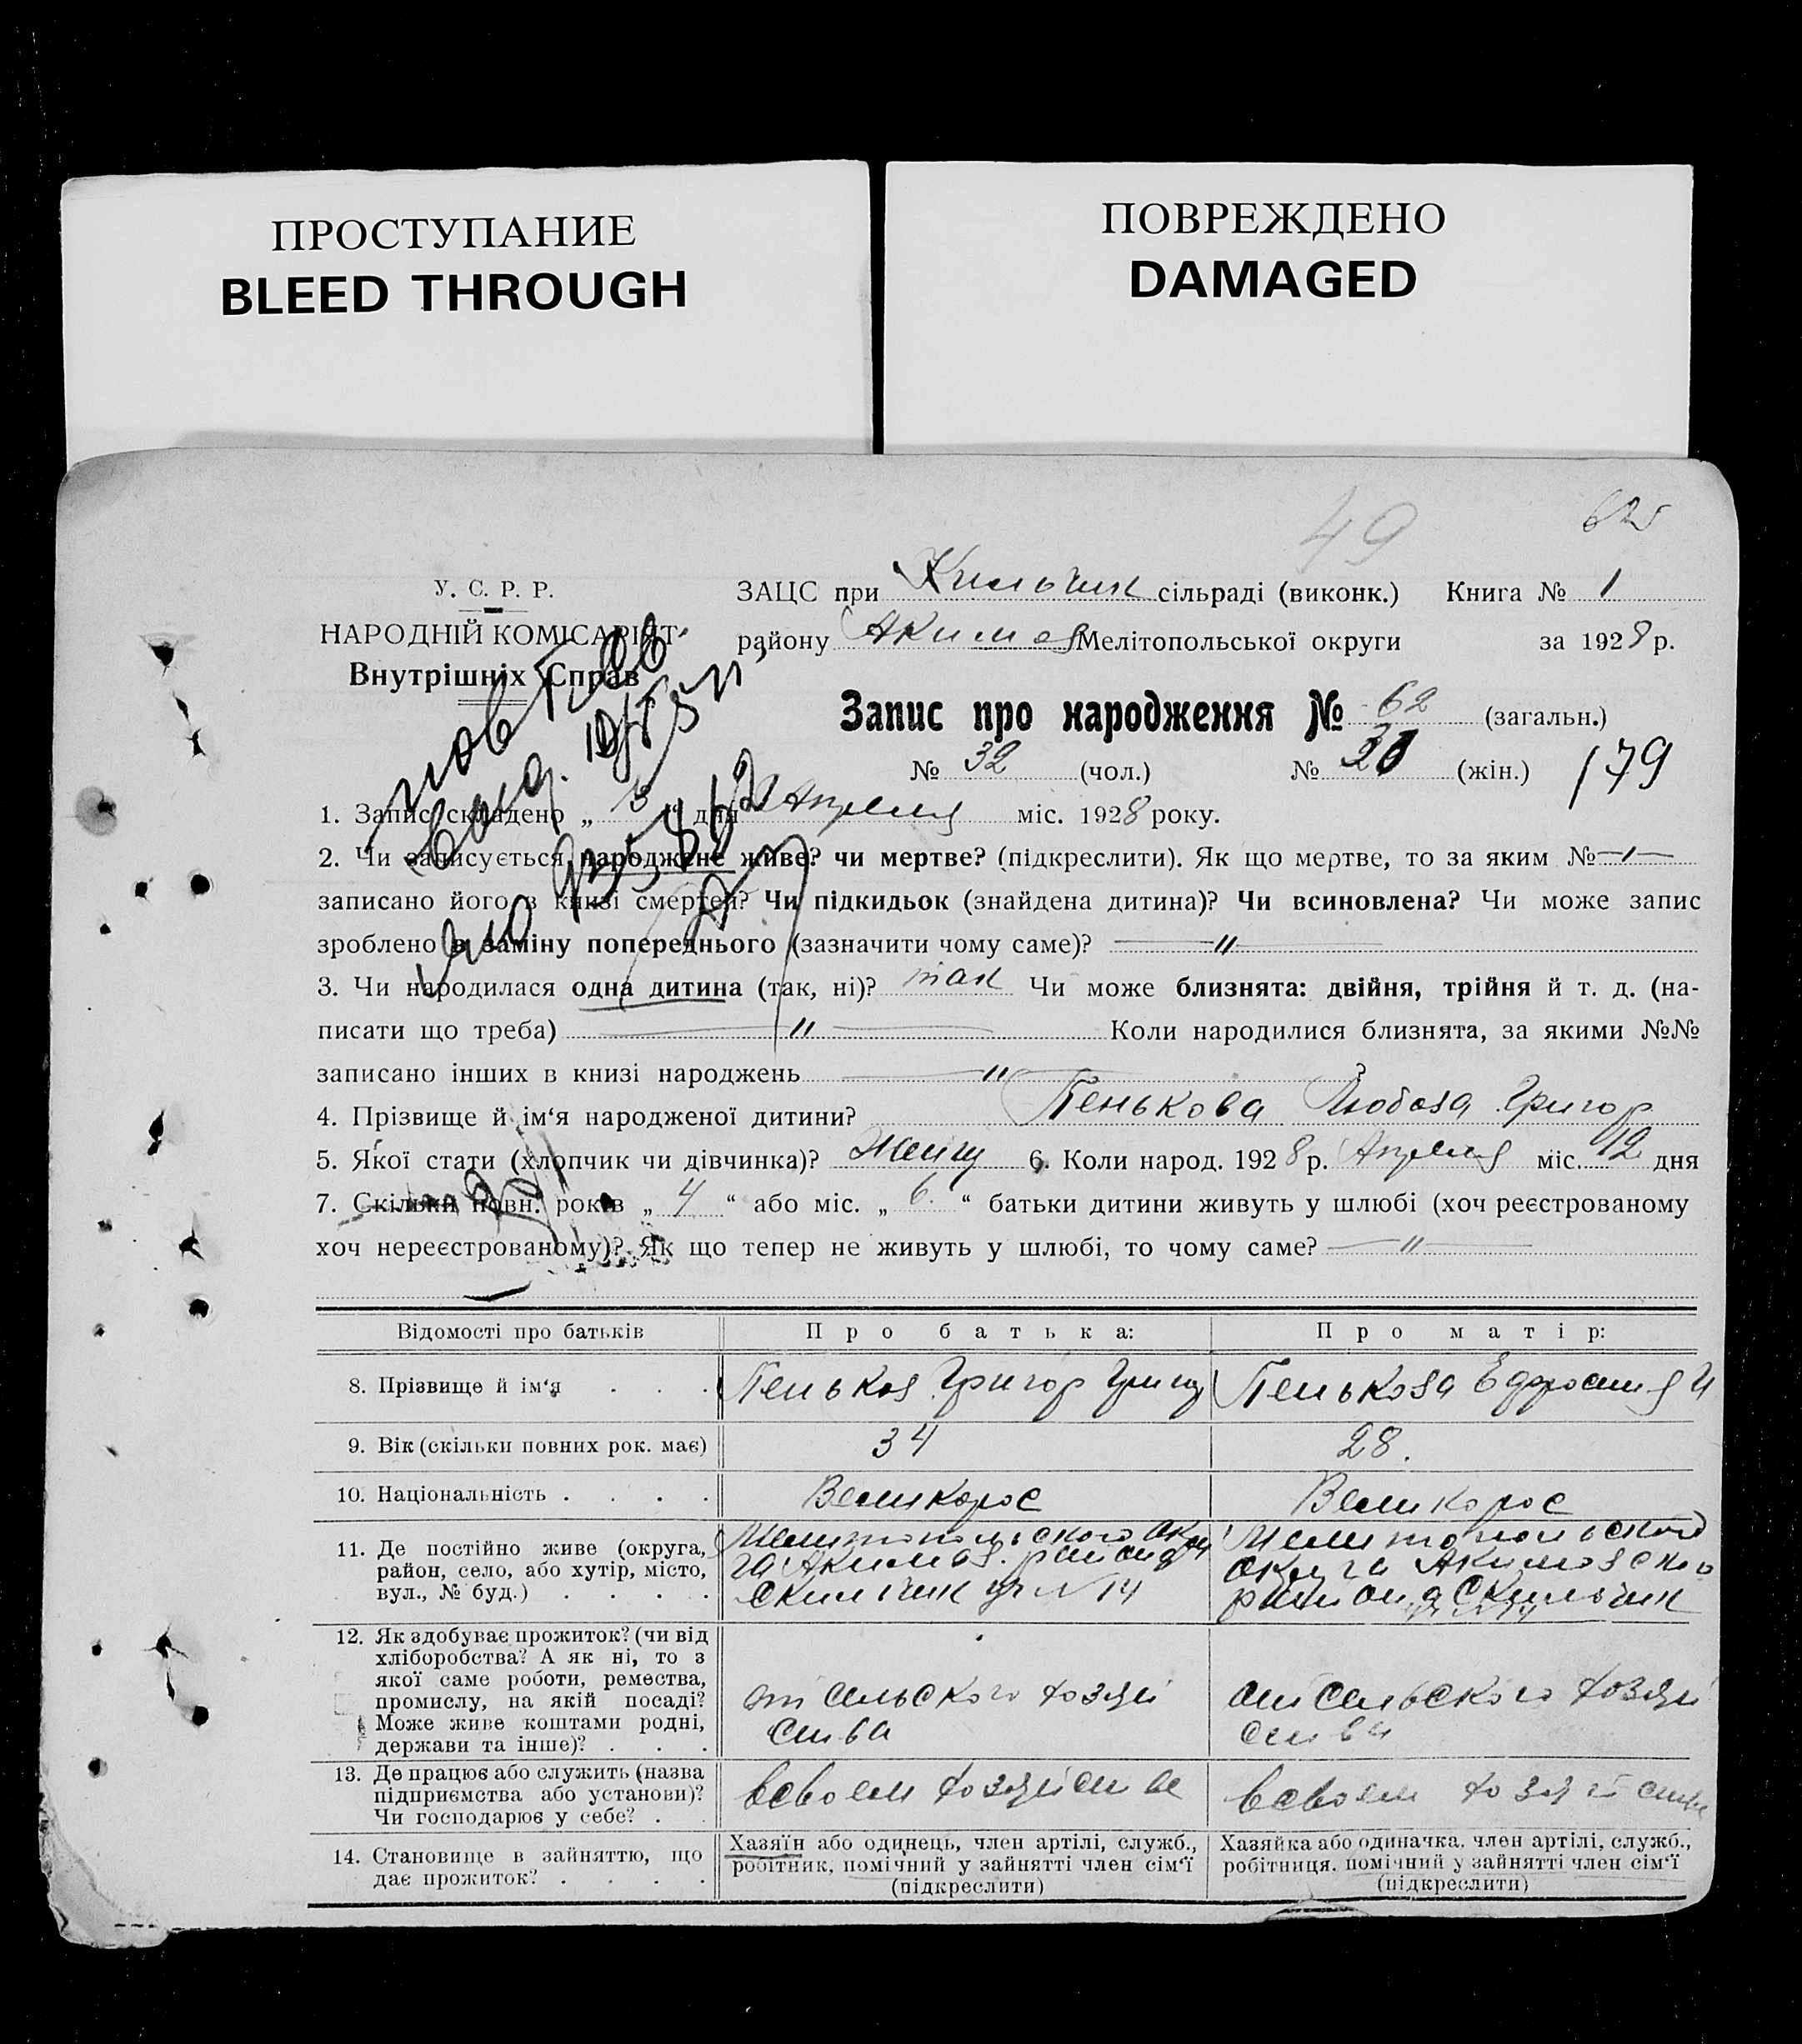 ПРОСТУПАНИЕ
BLEED THROUGH
ПОВРЕЖДЕНО
DAMAGED
49
У. С. Р. Р.
НАРОДНІЙ КОМІСАРІЯТ
Внутрішніх Справ
ЗАЦС при Кильчик сільраді (виконк.) Книга № 1
району Акимов Мелітопольської округи за 1928 р.
Запис про народження № 62 (загальн.)
№ 32 (чол.) № (жін.) 179
1. Запис складено „ “ дня Апреля міс. 1928 року.
2. Чи записується народжене живе? чи мертве? (підкреслити). Як що мертве, то за яким №
записано його в книзі смертей? Чи підкидьок (знайдена дитина)? Чи всиновлена? Чи може запис
зроблено в заміну попереднього (зазначити чому саме)? — „ —
3. Чи народилася одна дитина (так, ні)? так Чи може близнята: двійня, трійня й т. д. (на-
писати що треба) — „ — Коли народилися близнята, за якими №№
записано інших в книзі народжень — „ — ?
4. Прізвище й ім‘я народженої дитини? Пенькова Любова Григор
5. Якої стати (хлопчик чи дівчинка)? 6. Коли народ. 1928 р. Апреля міс. 12 дня
7. Скільки повн. років „ 4 “ або міс. „ 6. “ батьки дитини живуть у шлюбі (хоч реєстрованому
хоч нереєстрованому)? Як що тепер не живуть у шлюбі, то чому саме? — „ —
Відомості про батьків Про батька: Про матір:
8. Прізвище й ім‘я . . . Пеньков Григор Григ Пенькова Ефросиния И
9. Вік (скільки повних рок. має) 34 28.
10. Національність . . . . Великорос Великорос
11. Де постійно живе (округа,
район, село, або хутір, місто,
вул., № буд.) . . . .
Мелитопольского окру
га Акимов. района
с Кильчик № 14
Мелитопольского
округа Акимовско
района с Кильчик
12. Як здобуває прожиток? (чи від
хліборобства? А як ні, то з
якої саме роботи, ремества,
промислу, на якій посаді?
Може живе коштами родні,
держави та інше)? . . .
от сельского хозяй
ства
от сельского хозяй
ства
13. Де працює або служить (назва
підприємства або установи)?
Чи господарює у себе? . .
всвоем хозяйстве
всвоем хозяйстве
14. Становище в зайняттю, що
дає прожиток? . . . .
Хазяїн або одинець, член артілі, служб.,
робітник, помічний у зайнятті член сім‘ї
(підкреслити)
Хазяйка або одиначка, член артілі, служб.,
робітниця, помічний у зайнятті член сім‘ї
(підкреслити)